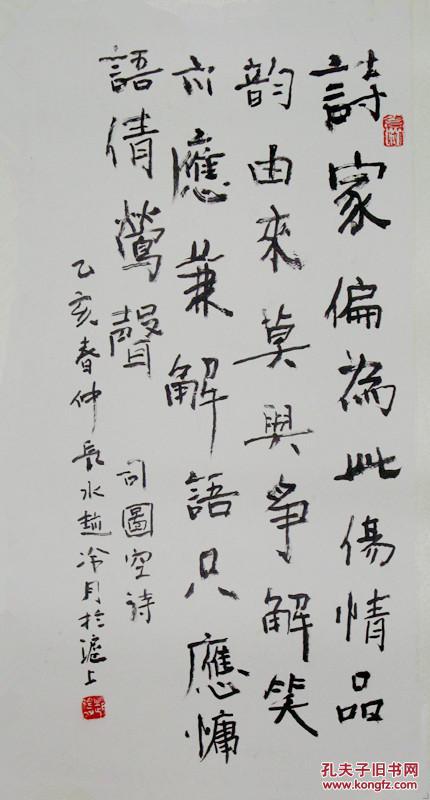 詩家偏為此傷情品
韵由來莫與爭解笑
亦應兼解語只應慵
語倩鶯聲
司圖空詩
乙亥春仲長水趙冷月於滬上
孔夫子旧书网
www.kongfz.com